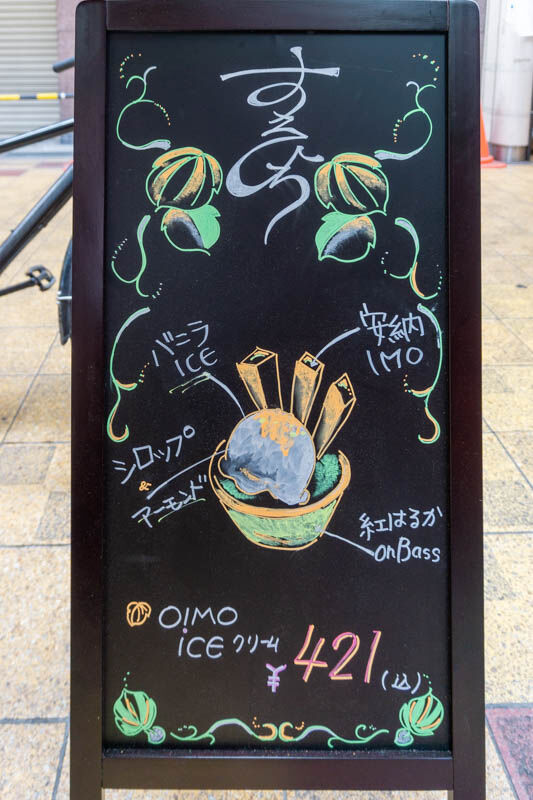 バニラ
ICE
安納
IMO
シロップ
&
アーモンド
紅はるか
onBass
OIMO
iCEクリーム
¥421(込)